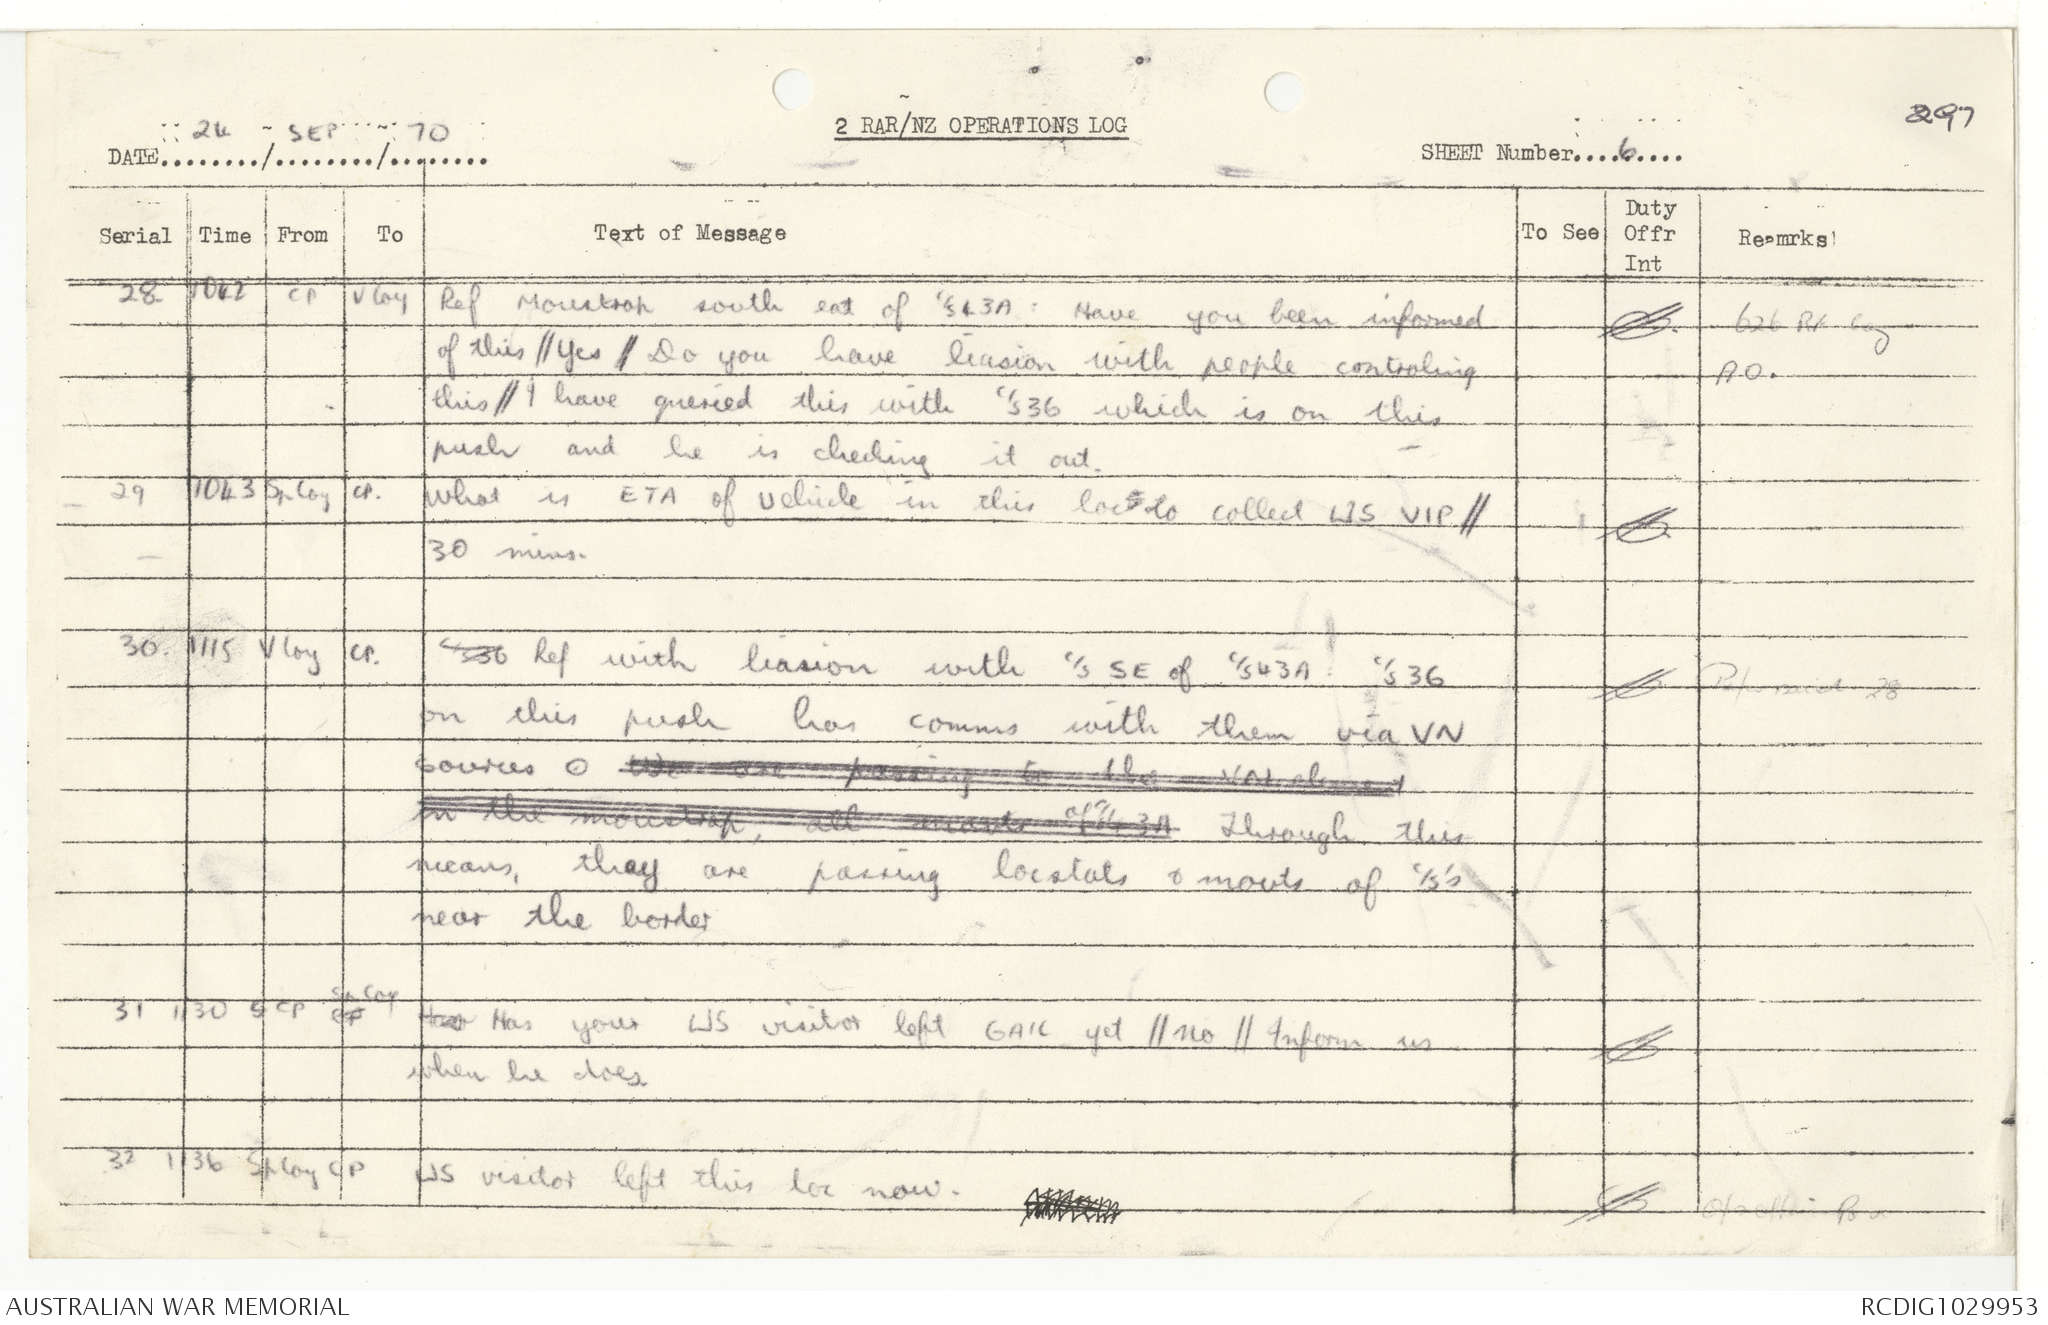 297
24 SEP 70
DATE......../......../........
2 RAR/NZ OPERATIONS LOG
SHEET Number....6....
Serial Time From To Text of Message To See Duty Offr Int Remrks
28 1042 CP V Coy Ref Moustrap south eat of C/S 43A. Have you been informed
of this // Yes // Do you have liasion with people controling
this // I have queried this with C/S 36 which is on this
push and he is checking it out.
626 Rf Coy
A.O.
29 1043 Sp Coy CP. What is ETA of vehicle in this loc to collect US VIP //
30 mins.
30. 1115 V Coy CP. C/S 36 Ref with liasion with C/S SE of C/S 43A. C/S 36
on this push has comms with them via VN
sources O We are passing to the VN element
in the moustrap, all movts of C/S 43A Through this
means, they are passing locstats & movts of C/S's
near the border
28
31 1130 CP Sp Coy Has your US visitor left GAIL yet // no // Inform us
when he does
32 1136 Sp Coy CP US visitor left this loc now.
AUSTRALIAN WAR MEMORIAL
RCDIG1029953